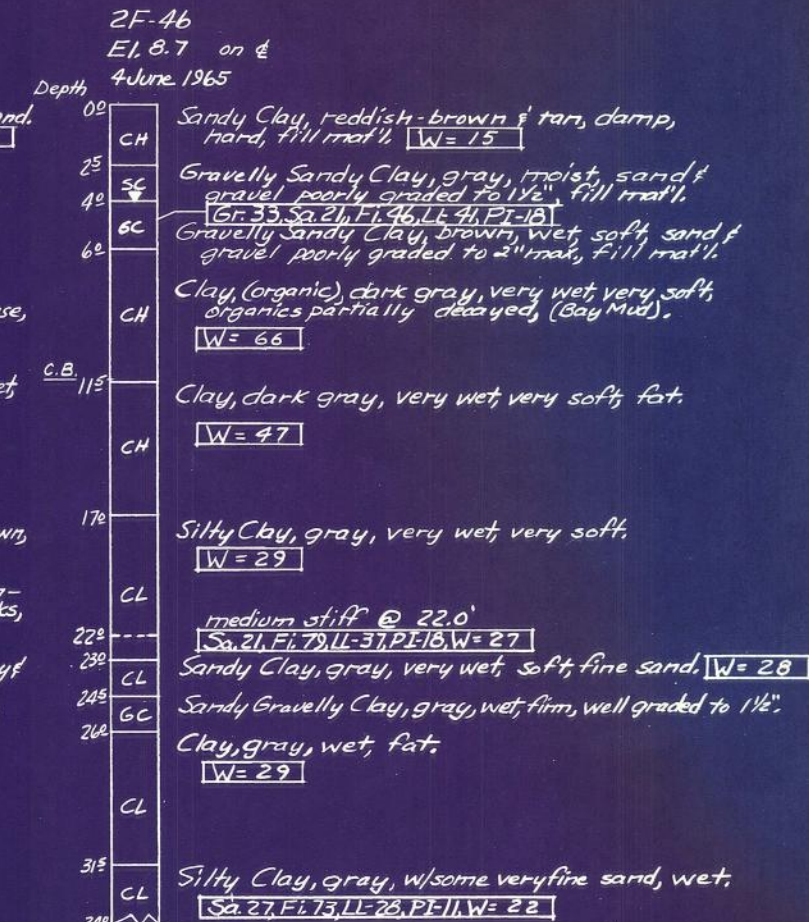 2F-46
El. 8.7 on ⅊
4 June 1965
Depth
0⁰
Sandy Clay, reddish-brown & tan, damp,
hard, fill mat'l. W = 15
CH
2⁵
Gravelly Sandy Clay, gray, moist, sand &
gravel poorly graded to 1½", fill mat'l.
SC
4⁰
Gr. 33, Sa. 21, Fi. 46, LL 41, PI-18
GC
Gravelly Sandy Clay, brown, wet, soft, sand &
gravel poorly graded to 2" max, fill mat'l.
6⁰
Clay, (organic), dark gray, very wet, very soft,
organics partially decayed, (Bay Mud).
CH
W = 66
C.B. 11⁵
Clay, dark gray, very wet, very soft, fat.
W = 47
CH
17⁰
Silty Clay, gray, very wet, very soft.
W = 29
CL
medium stiff @ 22.0'
22⁰
Sa. 21, Fi. 79, LL-37, PI-18, W = 27
23⁰
CL
Sandy Clay, gray, very wet, soft, fine sand. W = 28
24⁵
GC
Sandy Gravelly Clay, gray, wet, firm, well graded to 1½".
26⁰
Clay, gray, wet, fat.
W = 29
CL
31⁵
Silty Clay, gray, w/some very fine sand, wet.
CL
Sa. 27, Fi. 73, LL-28, PI-11, W = 22